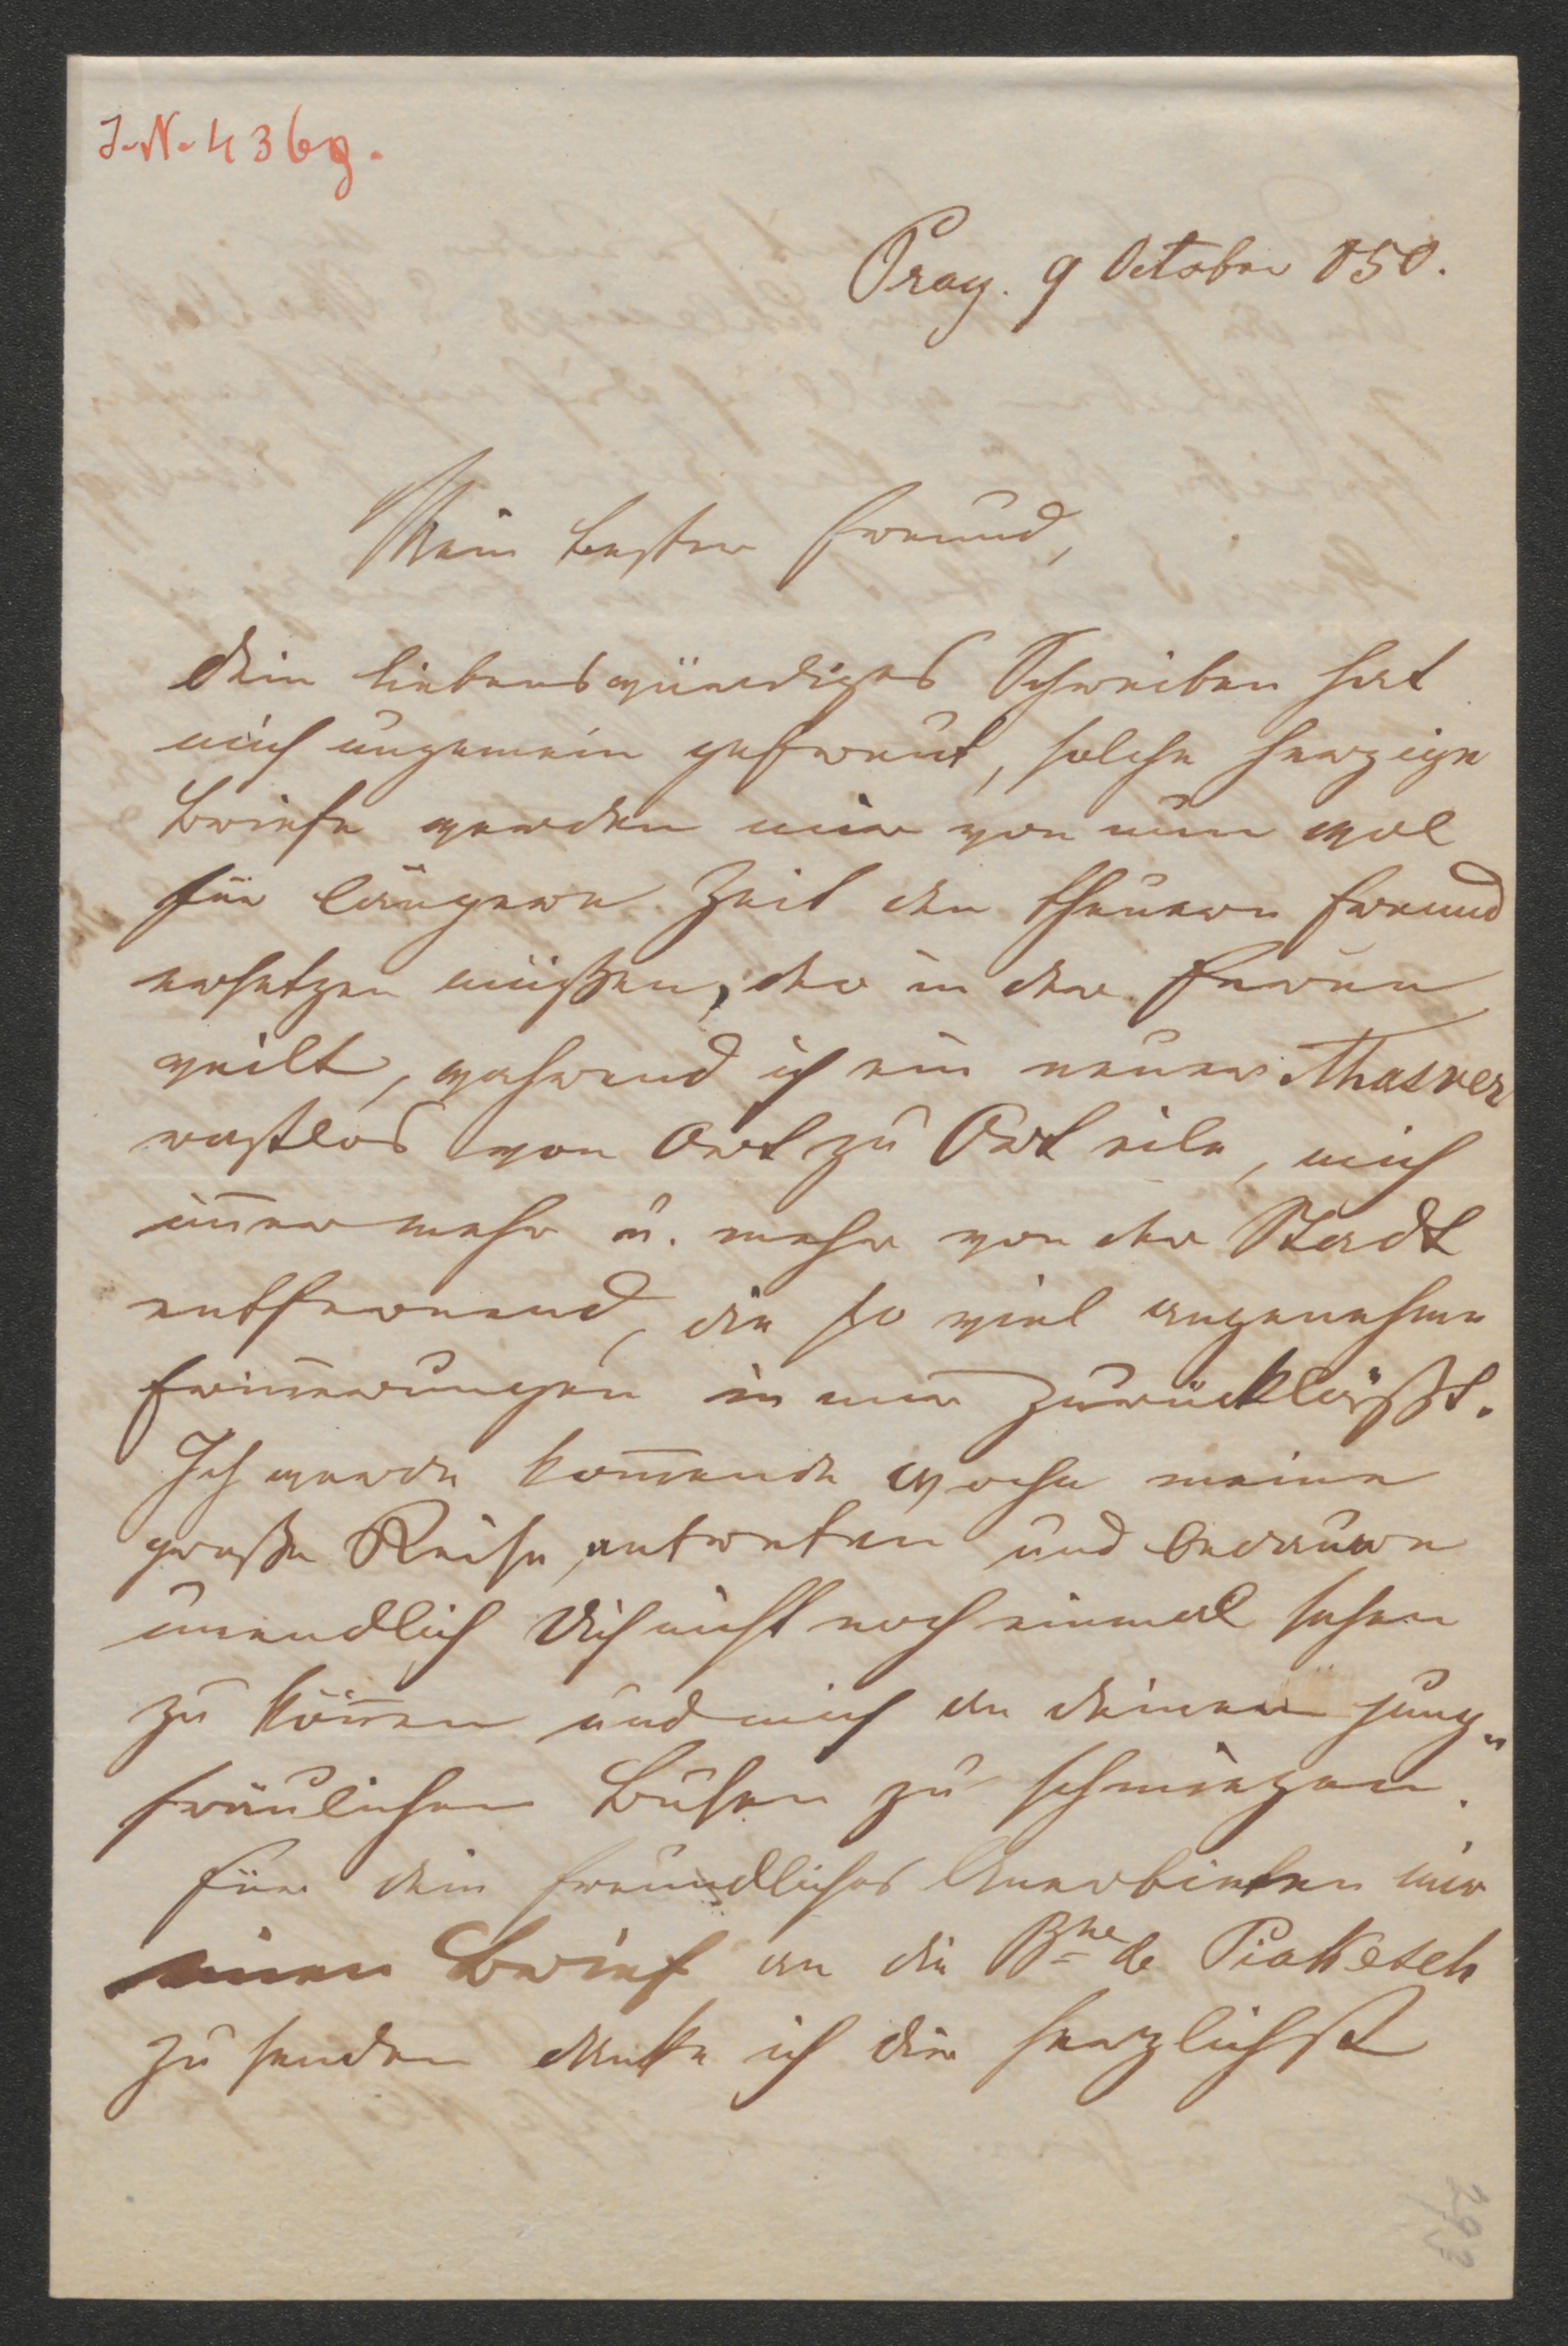 J.N. 4369.
Prag. 9 October 850.
Mein bester Freund,
dein liebenswürdiges Schreiben hat
mich ungemein gefreut, solche herzige
Briefe werden mir von nun wol
für längere Zeit den theuern Freund
ersetzen müßen, der in der Ferne
weilt, während ich ein neuer Ahasver
rastlos von Ort zu Ort eile, mich
im̅er mehr u. mehr von der Stadt
entfernend, die so viel angenehme
Erin̅erungen in mir zurückläßt.
Ich werde kom̅ende Woche meine
große Reise antreten und bedaure
unendlich Dich nicht noch einmal sehen
zu kön̅en und mich an deinen jung„
fräulichen Busen zu schmiegen.
Für dein freundliches Anerbieten mir
einen Brief an die Bne de Prokesch
zu senden danke ich dir herzlichst